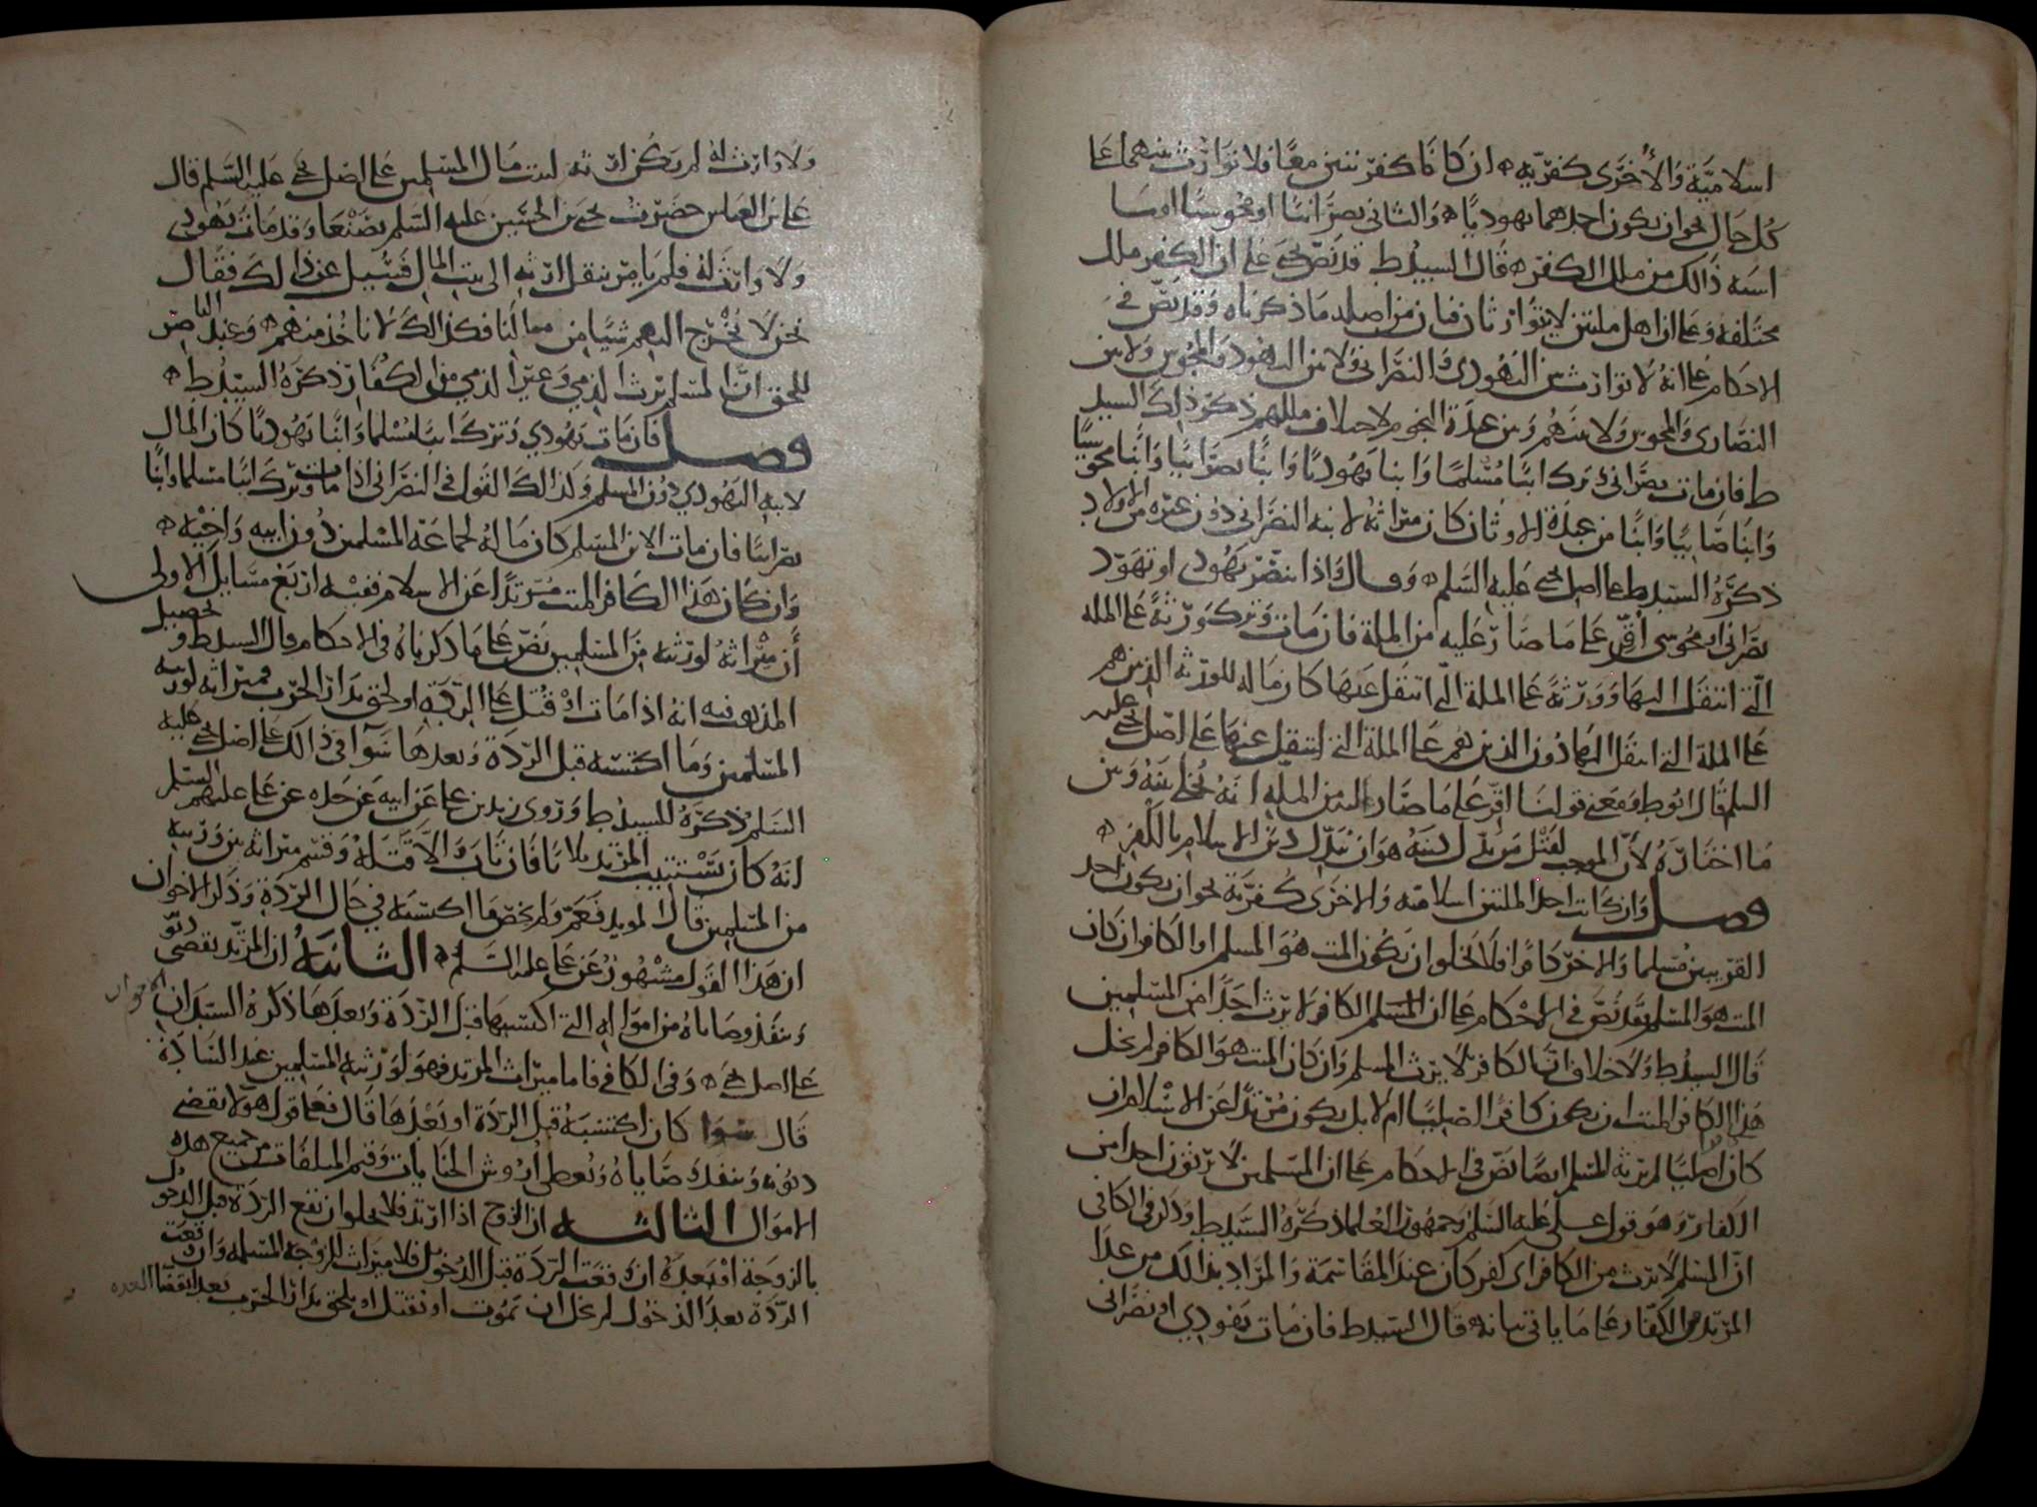 اسلاميَّة وَالأخرَى كفريّه ان كانتا كفرَّيتين معًا فلا توارُث بينهما عَلَى
كُل حَال نحو ان يكون احدهما يهوديًّا وَالثاني نصرَانيًّا او مجوسيًّا او مَا
اشبه ذَالك من ملل الكفر قَالَ السيد ط قد نصّ يحيَ عَلى ان الكفر ملل
مختلفة وَعَلى ان اهل ملتين لا يتوَارثان فبان من اصله مَا ذكرناه وَقد نصّ في
الاحكام عَلى انهُ لا توَارث بين اليَهُودي وَالنصرَاني وَلا بين اليهود وَالمجوس وَلا بين
النصَّارى وَالمجوس وَلا بينهم وَبين عبدَة النجوم لاختلاف مللهم ذكرَ ذلِكَ السيد
ط فان مَات نصرَاني وَترَك ابنًا مُسْلمًا وَابنا يَهُوديًا وَابنًا نصرَانيًا وَابنًا مجوسيًّا
وَابنًا صَابيًا وَابنًا من عبدَة الاوثان كان ميراثهُ لابنه النصرَاني دُون غيره من الاولاد
ذكرَهُ السيّد ط عَلى اصل يحيَ عَليه السَلم وَقال وَاذا تنصّر يَهُودي او تهَوّد
نصرَاني او مجوسي اقِر عَلى مَا صَارَ عَليه من الملة فان مَات وَترَك وَرَثةً عَلى المله
الّتي انتقل اليهَا وَوَرثةً عَلى الملة الّتي انتقل عنهَا كان مَاله للورَثه الذين هم
عَلى الملة التي انتقل اليهَا دُون الذين هم عَلى الملة التي انتقل عنهَا عَلى اصل يحيَ عليه
السلم قَالَ ابو ط وَمعنى قولنَا اقِر عَلى مَا صَار اليه من المله انهُ يُخلى بينهُ وَبين
مَا اختارَهُ لأنّ الموجب لقَتْل من بدّل دينهُ هوَ ان يبدّل دين الاسلام بالكفر
فصل وَان كانت احد الملتين اسلاميه وَالاخرَى كُفريّة نحو ان يكون احد
القريبين مُسلما وَالاخر كافرًا فلا يخلو ان يكون الميت هُوَ المسلم او الكافر ان كان
الميت هوَ المسلم فقد نصّ في الاحكام عَلى ان المسلم الكافر لا يرث احَدًا من المسلمين
قَالَ السيد ط وَلا خلاف ان الكافر لا يرث المسلم وَان كان الميت هوَ الكافر لم يخل
هَذا الكافر الميت ان يكون كافرًا اصليًّا ام لا بل يكون مُرتدًا عَن الاسْلام ان
كان اصليًّا لم يرثه المسلم ايضًا نصّ في الاحكام عَلى ان المسلمين لا يرثون احدا من
الكفار وَهو قول علي عَليه السَلم وَجمهور العُلما ذكرَهُ السَيد ط وَذكر في الكافي
انّ المسلم لا يرث من الكافر اي كفر كان عند المقاسَمة وَالمرَاد بذالك من عدَا
المرتد من الكفار عَلى مَا ياتي بيانه قَال السَيد ط فان مَات يهُودي او نصرَاني
وَلا وَارثَ لهُ لم يكُن ارثه لبيت مَال المسلمين عَلى اصل يحيَ عَليه السَّلم قال
عَلي بن العباس حضَرْتُ يحيَ بن الحسَين عَليه السَّلم بصَنْعَا وَقد مَات يَهُودي
وَلَا وَارثَ لَهُ فلم يَامر بنقل ارثه الى بيت المال فَسُئِل عن ذالكَ فقَال
نحن لا نُخْرج اليهم شيًا من مالنا فكذالك لا ناخُذ منهم وَعند الناصر
للحق انّ المسلم يَرث الذمي وَغير الذمي من الكفار ذكرَهُ السيّد ط
فصل فان مَات يَهُودي وَترَك ابنا مُسْلما وَابنًا يَهُوديًا كان المال
لابنه اليَهُودي دُون المسلم وَكذالك القول في النصرَاني اذا مات وَترَك ابنا مسلما وَابنًا
نصرَانيًا فان مات الابن المسلم كان مَالهُ لجمَاعَة المسلمين دُون ابيه وَاخيْه
وَان كان هَذا الكافر الميت مُرتدًا عَن الاسلام ففيه ارْبَعْ مسَايل الاولى
أن ميْرَاثهُ لورَثته من المسلمين نصّ عَلى مَا ذكرناهُ في الاحكام قال السيد ط وتحصيل
المذهب فيه انهُ اذا مَات اوْ قُتل عَلى الرّدّة او لحق بدَار الحرْب فميرَاثه لورثته
المسلمين وَمَا اكتسَبه قبل الرّدَة وَبعدهَا سَوَآ في ذالكَ عَلى اصل يحيَ عَليه
السَلم ذكرَهُ السيد ط وَرَوى زيد بن علي عَن ابيه عَن جَده عن عَلي عليهم السلم
انهُ كان يَسْتَتيب المرتد ثلاثا فان تابَ وَالاَّ قَتلهُ وَقسَم ميرَاثه بين وَرَثته
من المسلمين قَالَ المويد فَعَمّ وَلم يخصّ مَا اكتسبَه في حَال الرّدَة وَذكر الاخوان
ان هَذا القول مَشْهُورٌ عَن عَلي عليه السَّلم الثانيَهُ ان المرتد يقضى دَيْنُهُ
وَتنفذ وصَاياهُ من اموَاله التي اكتسبهَا قبل الرّدَة وَبعدهَا ذكرهُ السيّدان
الاخوان
عَلى اصل يحيَ وَفي الكافي فاما ميرَاث المرتد فهوَ لوَرثته المسلمين عند السَّادَة
قَال سَوَا كان اكتسَبهُ قبل الرّدَة او بَعْدهَا قَال فعَلى قول هَولا يقضى
ديُونه وَتنفذ وَصَاياهُ وَيُعطى ارُوش الجنَايات وَقيم المتلفات من جميع هذه
الاموَال الثالثه ان الزوج اذا ارتد فلا يخلو ان تقع الرّدة قبل الدخول
بالزوجَة اوْ بَعدهُ ان وَقعَت الرّدَة قبل الدّخول فلا ميرَاث للزوْجَة المسلمه وَان وقعَت
الرّدَة بعدَ الدخُول لم يخل ان يَمُوت او يُقتل او يلحق بدَار الحَرب بعد انقضَا العده